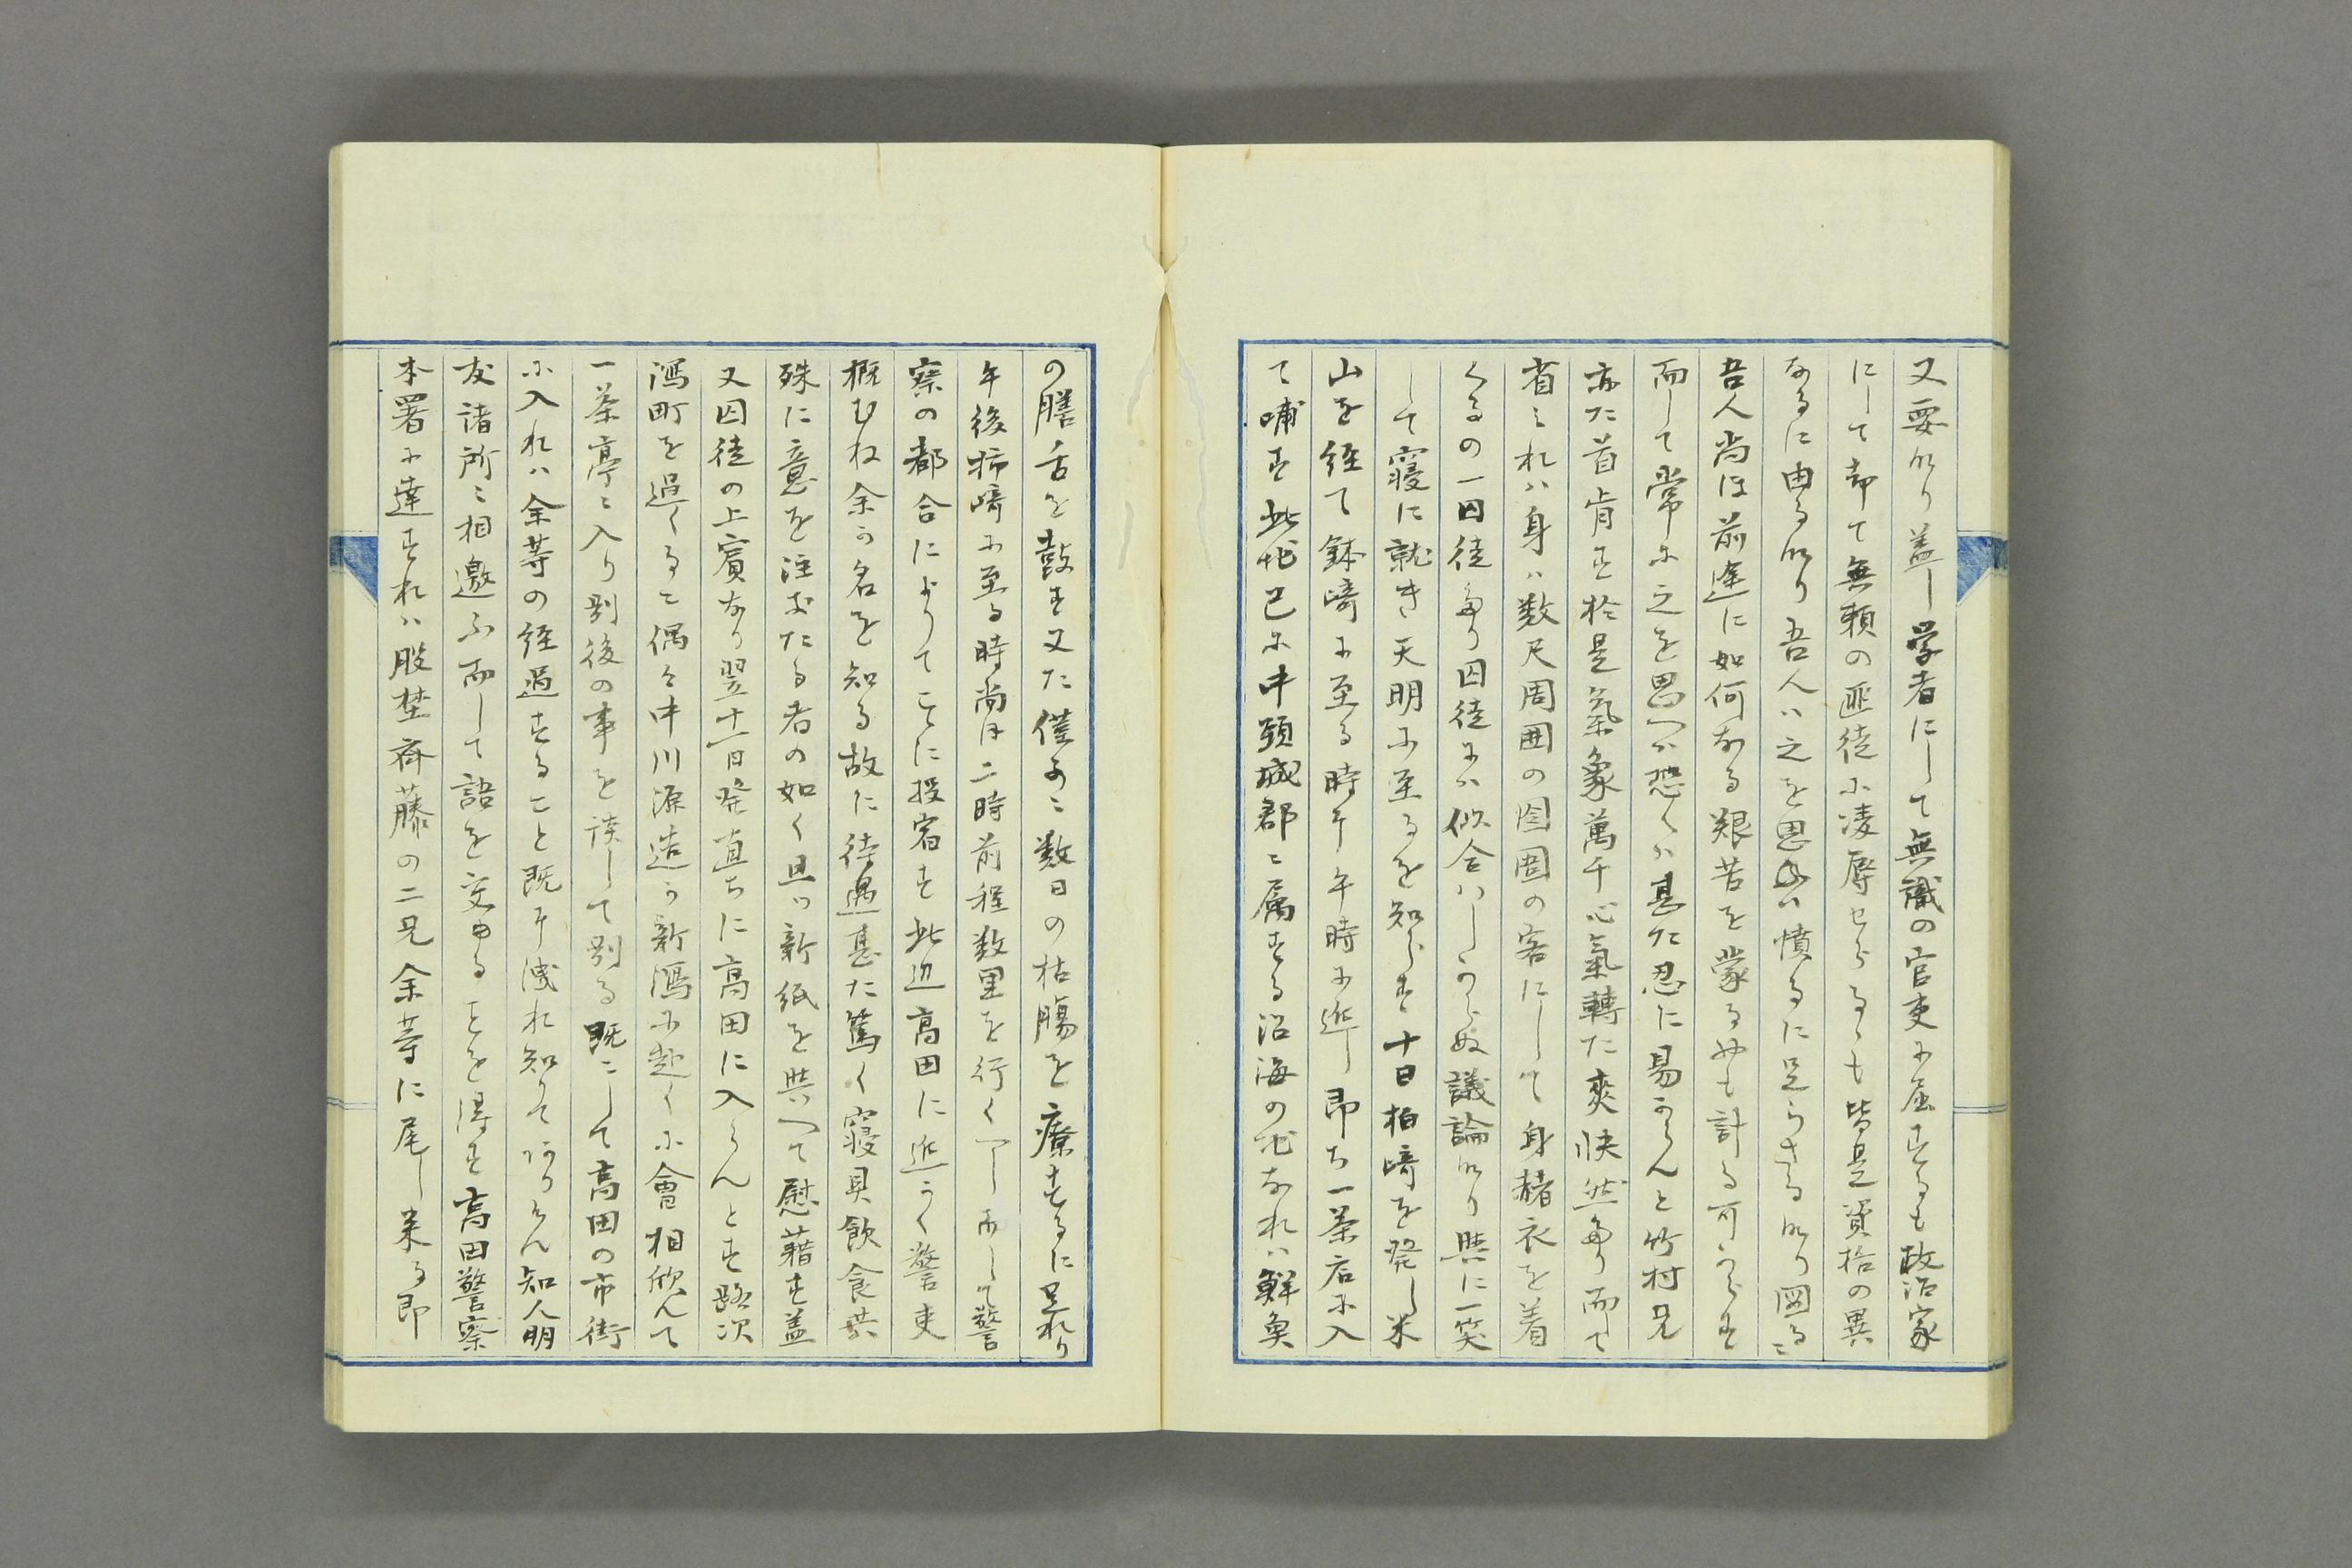 又要なり蓋し学者にして無識の官吏に屈するも政治家
にして却て無頼の匪徒に凌辱せらるゝも皆是資格の異
なるに由るなり吾人は之を思へは憤るに足らさるなり図るに
吾人尚ほ前途に如何なる艱苦を蒙るやも計る可らす
而して常に之を思へは恐くは甚た忍に易からんと竹村兄
亦た首肯す於是気象萬千心氣轉た爽快然たり而て
省みれは身は数尺周囲の囹圄の客にして身赭衣を着
くるの一囚徒たり囚徒には似合はしからぬ議論なり與に一笑
して寝に就き天明に至るを知らす十日柏﨑を発し米
山を経て鉢﨑に至る時午午時に近し即ち一茶店に入
て哺す此地已に中頸城郡に属する沿海の地なれは鮮魚
の膳舌を鼓す又た僅かに数日の枯腸を療するに足れり
午後柿﨑に至る時尚ほ二時前程数里を行くへし而して警
察の都合によりてこゝに投宿す此辺高田に近く警吏
概むね余か名を知る故に待遇甚た篤く寝具飲食共
殊に意を注きたる者の如く且つ新紙を與へて慰藉す蓋
又囚徒の上賓なり翌十一日発直ちに高田に入らんとす路次
潟町を過くるに偶々中川源造か新潟に赴くに會相欣んて
一茶亭に入り別後の事を談して別る既にして高田の市街
に入れは余等の経過すること既に洩れ知りてありけん知人朋
友諸所に相邀ふ而して語を交ゆることを得す高田警察
本署に達すれは股埜斉藤の二兄余等に尾し来る即